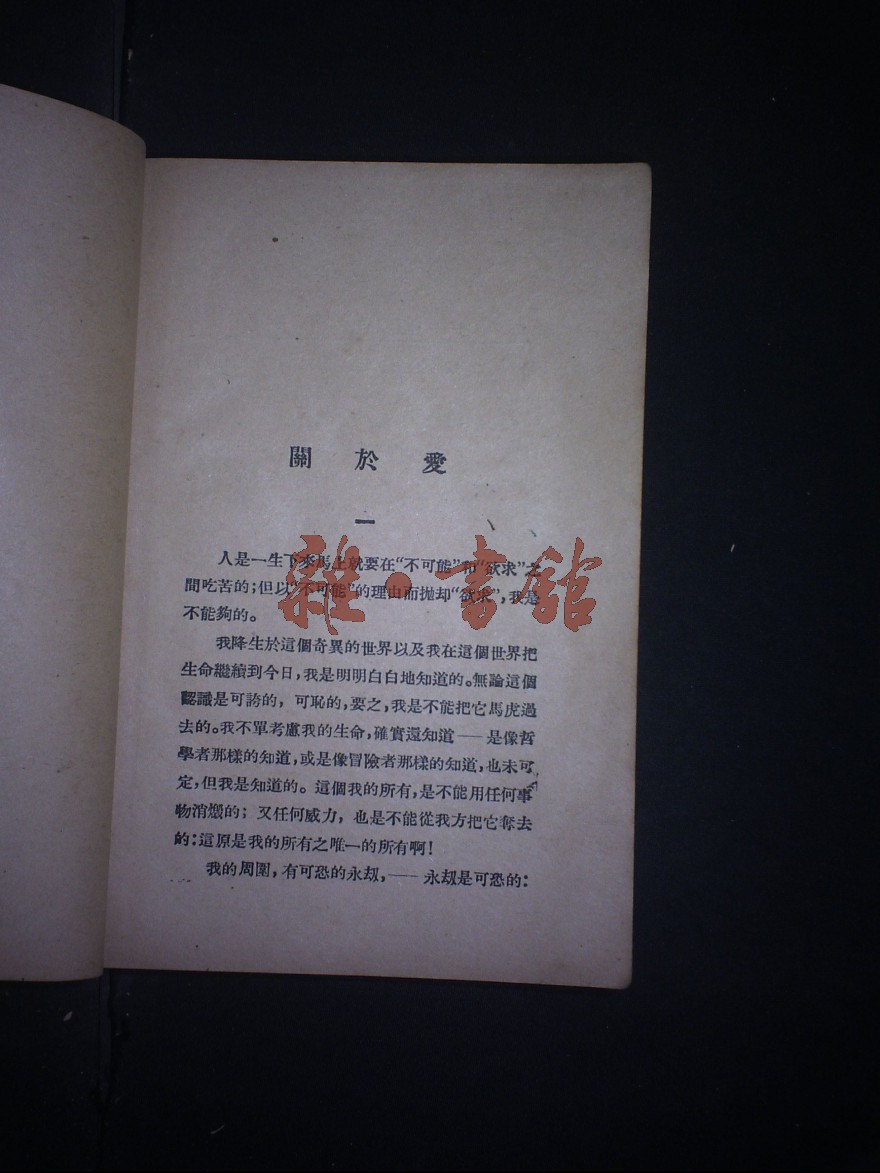 關於愛
一
人是一生下來馬上就要在“不可能”和“欲求”之
間吃苦的;但以“不可能”的理由而拋却“欲求”,我是
不能夠的。
我降生於這個奇異的世界以及我在這個世界把
生命繼續到今日,我是明明白白地知道的。無論這個
認識是可誇的,可恥的,要之,我是不能把它馬虎過
去的。我不單考慮我的生命,確實還知道——是像哲
學者那樣的知道,或是像冒險者那樣的知道,也未可
定,但我是知道的。這個我的所有,是不能用任何事
物消燬的;又任何威力,也是不能從我方把它奪去
的:這原是我的所有之唯一的所有啊!
我的周圍,有可恐的永刼,——永刼是可恐的:
雜·書館